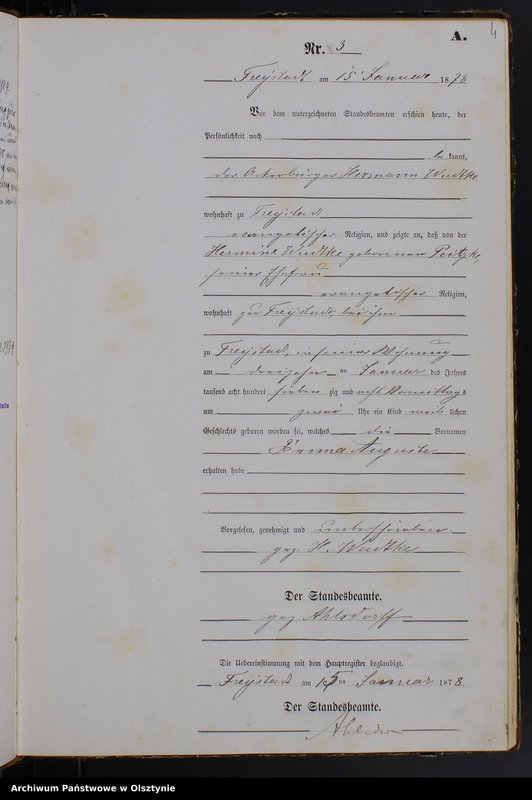 4
A.
Nr. 3
Freystadt am 15 Januar 1878
Vor dem unterzeichneten Standesbeamten erschien heute, der
Persönlichkeit nach
be kannt,
der Ackerbürger Hermann Wudtke
wohnhaft zu Freystadt
evangelischer Religion, und zeigte an, daß von der
Hermine Wudtke geborenen Peitzke
seiner Ehefrau
evangelischer Religion,
wohnhaft zu Freystadt, bei ihm
zu Freystadt, in seiner Wohnung
am dreizehn ten Januar des Jahres
tausend acht hundert sieben zig und acht Vormittags
um zwei Uhr ein Kind weib lichen
Geschlechts geboren worden sei, welches die Vornamen
Emma Auguste
erhalten habe
Vorgelesen, genehmigt und unterschrieben.
gez H. Wudtke
Der Standesbeamte.
gez Ahlsdorff
Die Uebereinstimmung mit dem Hauptregister beglaubigt.
Freystadt am 15 ten Januar 1878
Der Standesbeamte.
Archiwum Państwowe w Olsztynie